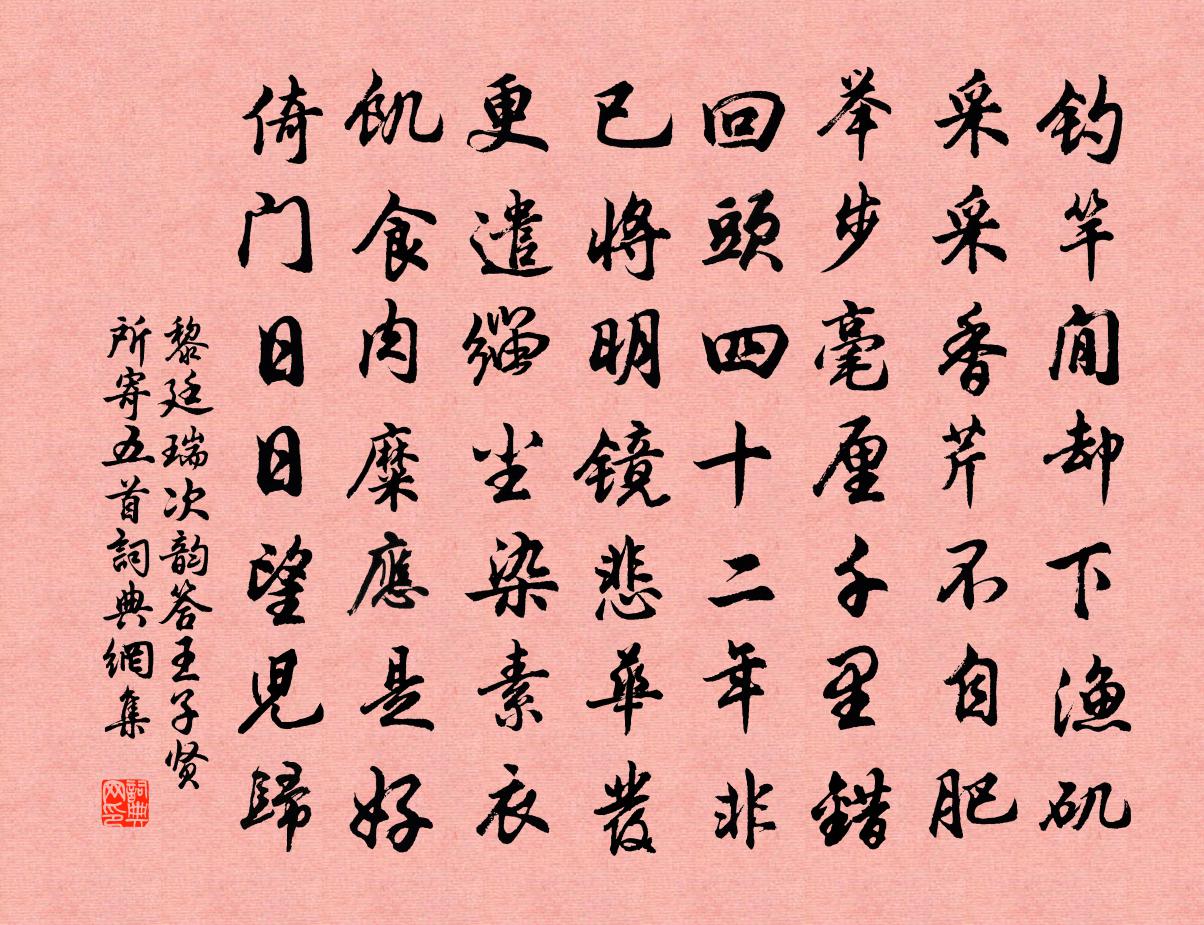 钓竿閒却下漁矶
采采香芹不自肥
举步毫厘千里錯
回頭四十二年非
已將明镜悲華發
更遣缁尘染素衣
飢食肉糜應是好
倚门日日望児歸
黎廷瑞次韵答王子贤
所寄五首詞典網集
詞典
网印